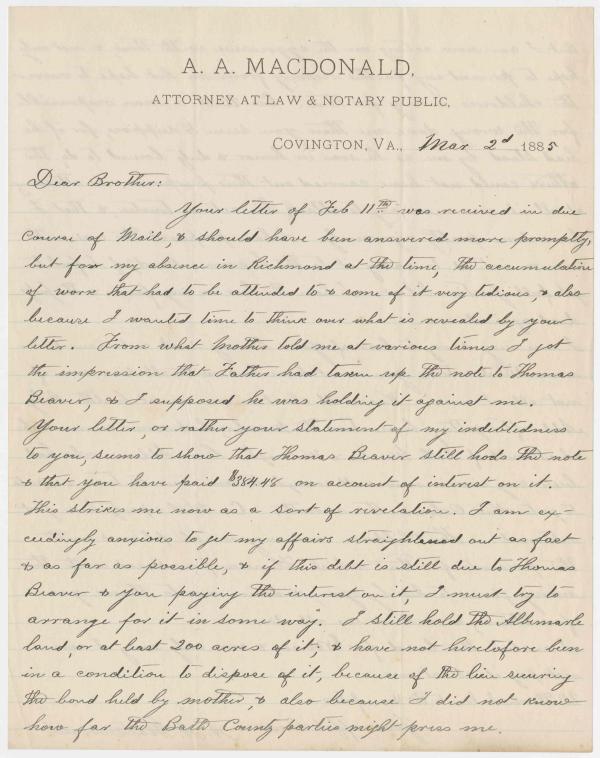 A. A. MACDONALD,
ATTORNEY AT LAW & NOTARY PUBLIC,
COVINGTON, VA., Mar 2d 1885
Dear Brother:
Your letter of Feb 11th was received in due
course of Mail, & should have been answered more promptly,
but for my absence in Richmond at the time, the accumulation
of work that had to be attended to & some of it very tedious, & also
because I wanted time to think over what is revealed by your
letter. From what Mother told me at various times I got
the impression that Father had taken up the note to Thomas
Beaver, & I supposed he was holding it against me.
Your letter, or rather your statement of my indebtedness
to you, seems to show that Thomas Beaver still hods the note
& that you have paid $384.48 on account of interest on it.
This strikes me now as a sort of revelation. I am ex-
ceedingly anxious to get my affairs straightened out as fast
& as far as possible, & if this debt is still due to Thomas
Beaver & you paying the interest on it, I must try to
arrange for it in some way. I still hold the Albemarle
land, or at least 200 acres of it; & have not heretofore been
in a condition to dispose of it, because of the lien securing
the bond held by mother, & also because I did not know
how far the Bath County parties might press me.